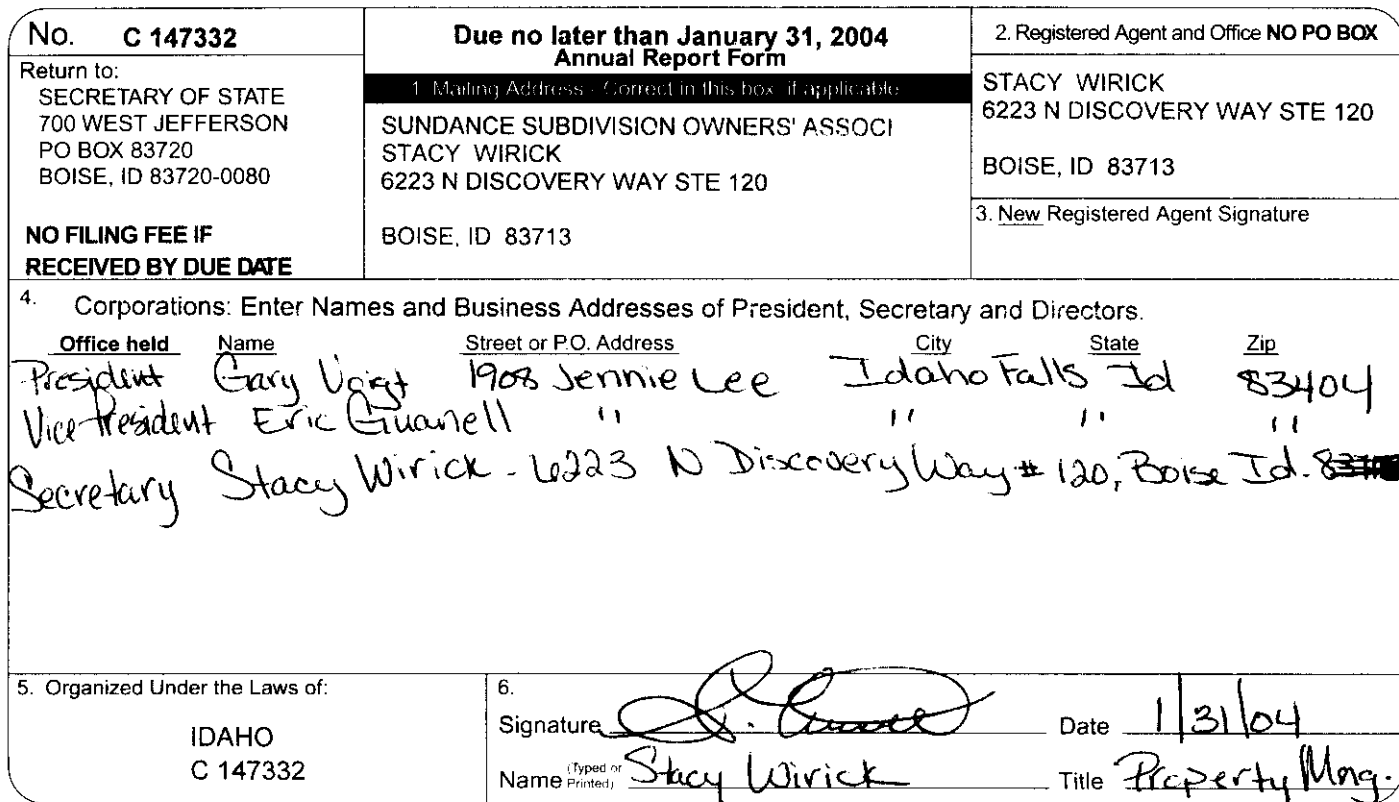 No. C 147332
Return to:
SECRETARY OF STATE
700 WEST JEFFERSON
PO BOX 83720
BOISE, ID 83720-0080
NO FILING FEE IF
RECEIVED BY DUE DATE
Due no later than January 31, 2004
Annual Report Form
1. Mailing Address - Correct in this box, if applicable
SUNDANCE SUBDIVISION OWNERS' ASSOCI
STACY WIRICK
6223 N DISCOVERY WAY STE 120
BOISE, ID 83713
2. Registered Agent and Office NO PO BOX
STACY WIRICK
6223 N DISCOVERY WAY STE 120
BOISE, ID 83713
3. New Registered Agent Signature
4. Corporations: Enter Names and Business Addresses of President, Secretary and Directors.
Office held Name Street or P.O. Address City State Zip
President Gary Voigt 1908 Jennie Lee Idaho Falls Id 83404
Vice President Eric Guanell " " " "
Secretary Stacy Wirick - 6223 N Discovery Way # 120, Boise Id.
5. Organized Under the Laws of:
IDAHO
C 147332
6.
Signature Date 1/31/04
Name (Typed or Printed) Stacy Wirick Title Property Mng.